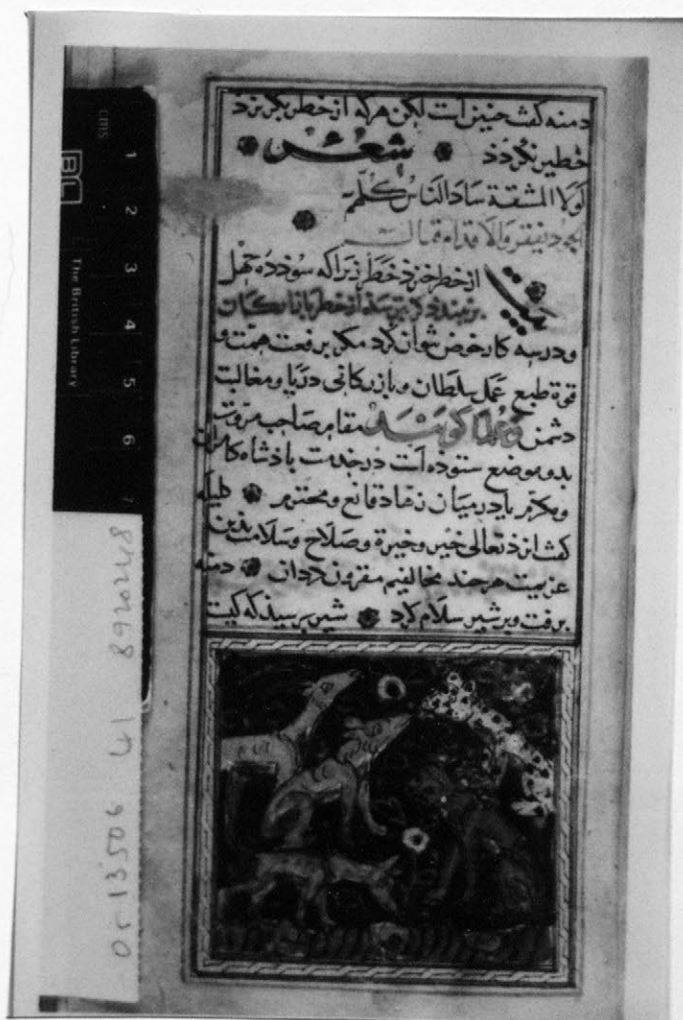 دمنه كفت جنين است لكن هركه از خطر بكريزد
خطير نكردذ شعر
لولا المشقة ساد الناس كلهم
الجود يفقر والاقدام قتال
بيت از خطر خيزد خطر زيرا كه سود ده چهل
بر نبندد كر بترسد از خطر بازاركان
و در سه كار خوض نتوان كرد مكر برفعت همت و
قوة طبع عمل سلطان و بازركانى دريا و مغالبت
دشمن و علما كويند مقام صاحب مروت
بدو موضع ستوده است در خدمت باذشاه كامران
و مكرم يا در ميان زهاد قانع و محترم كليله
كفت ايزد تعالى خير و خيرة و صلاح و سلامت بدين
عزيمت هرجند مخالفيم مقرون كرداند دمنه
برفت و بر شير سلام كرد شير برسيذ كه كيست
cms 1 2 3 4 5 6 7
BL The British Library
Or 13506 41 8920248